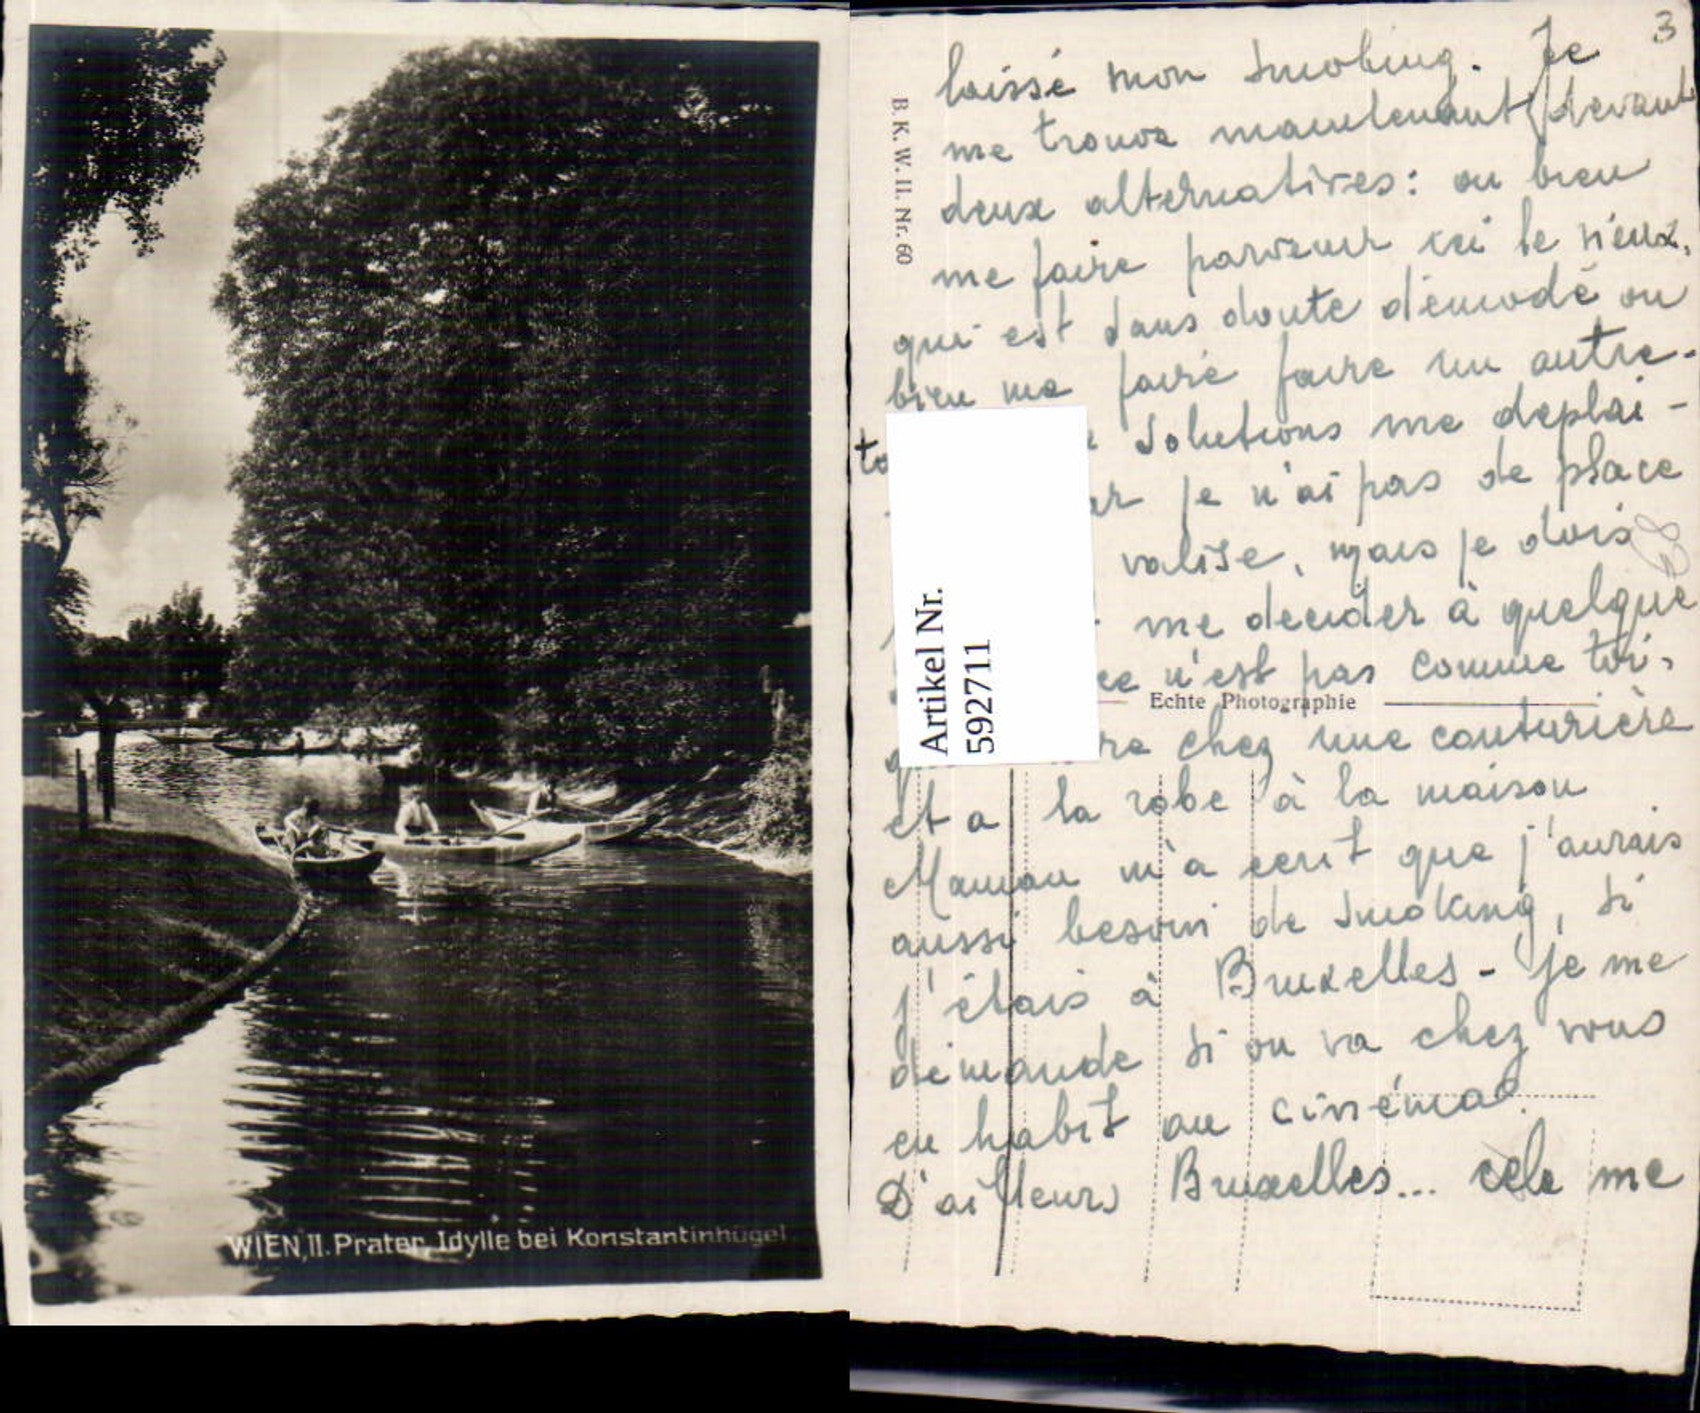 WIEN, II. Prater, Idylle bei Konstantinhügel
3
B. K. W. II. Nr. 60
laissé mon smoking. Je
me trouve maintenant devant
deux alternatives: ou bien
me faire parvenir ici le vieux,
qui est sans doute démodé ou
bien me faire faire un autre.
solutions me déplai-
je n'ai pas de place
valise, mais je dois
me decider à quelque
ce n'est pas comme toi,
Echte Photographie
chez une couturière
et a la robe à la maison
Maman m'a ecrit que j'aurais
aussi besoin de smoking, si
j'étais à Bruxelles - je me
demande si on va chez vous
en habit au cinéma?
D'ailleurs Bruxelles... cela me
Artikel Nr.
592711